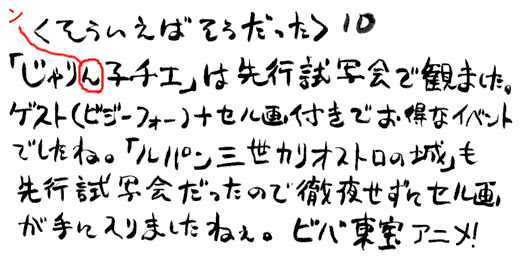 ン
<そういえばそうだった> 10
「じゃりん子チエ」は先行試写会で観ました。
ゲスト(ビジーフォー)+セル画付きでお得なイベント
でしたね。「ルパン三世カリオストロの城」も
先行試写会だったので徹夜せずにセル画
が手に入りましたねぇ。ビバ東宝アニメ!